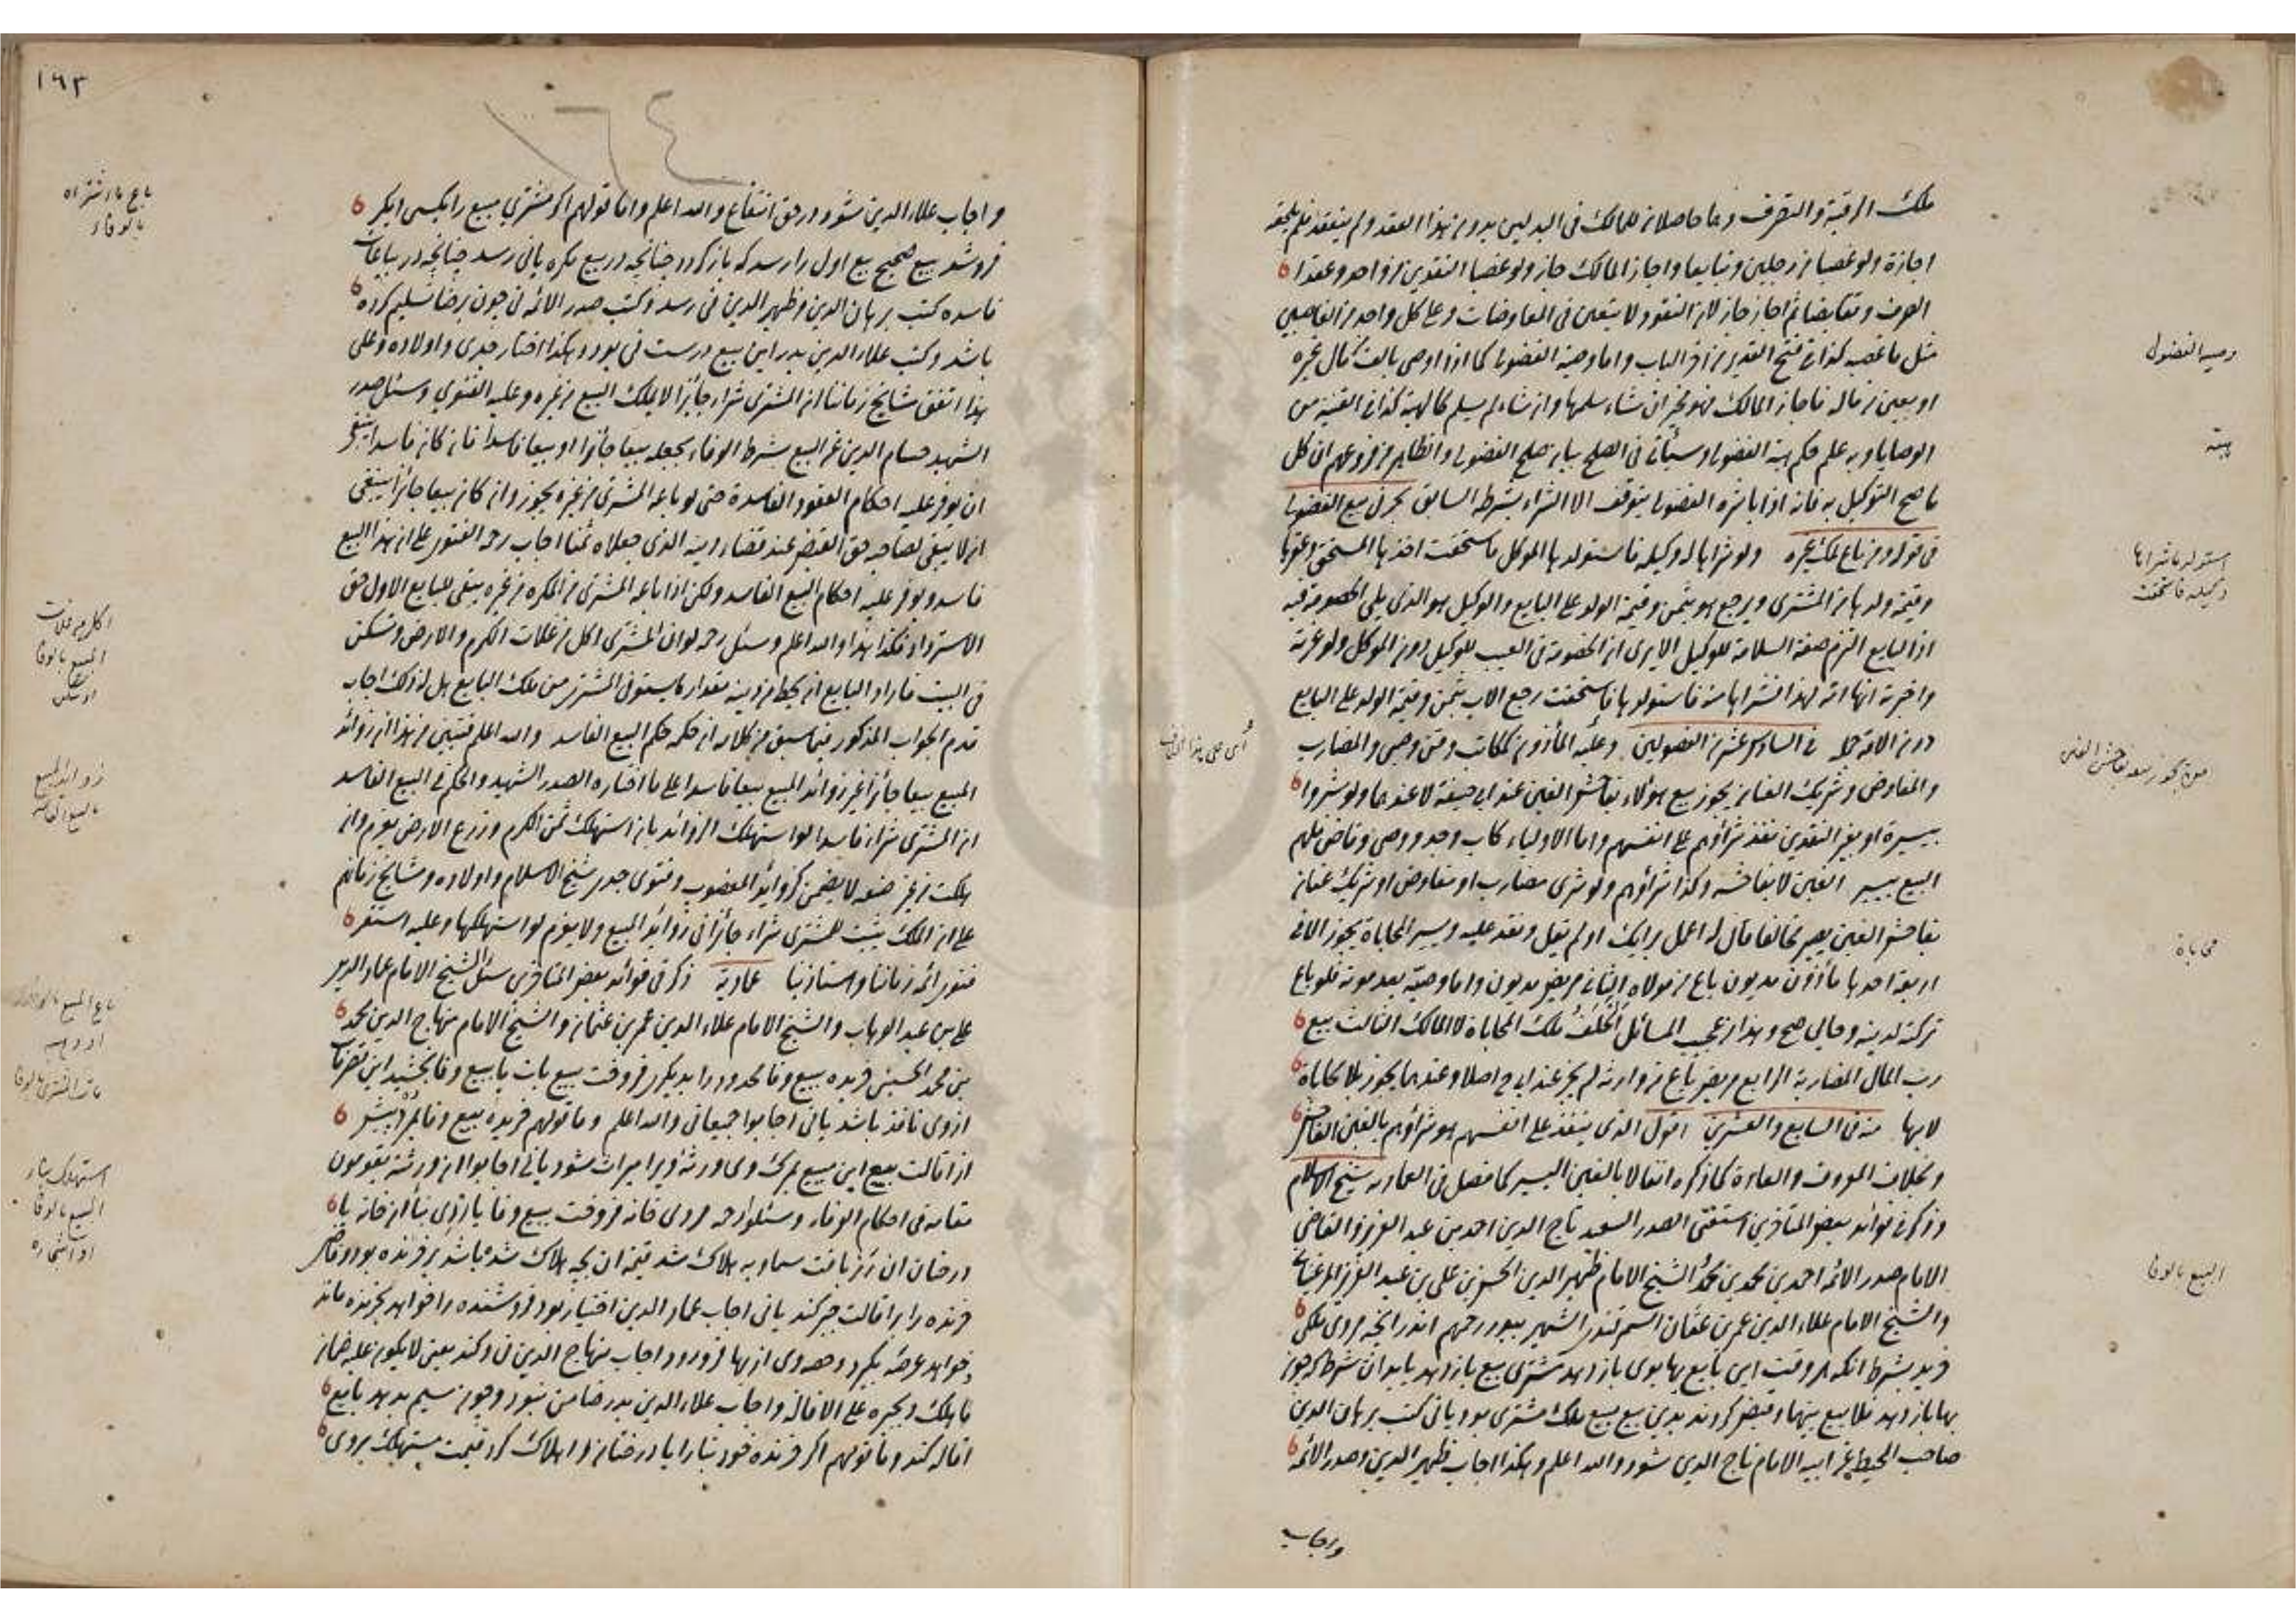 ملك الرقبة والتصرف وهما حاصلان للمالك في البدلين بدون هذا العقد ولم ينعقد فلم تلحقه
اجازة ولو غصبا من رجلين وتبايعا واجاز المالك جاز ولو غصبا النقدين من واحد وعقدا
الصرف وتقابضا ثم اجاز جاز لان النقود لا تتعين في المعاوضات وعلى كل واحد من الغاصبين
مثل ما غصبه كذا في فتح القدير من آخر الباب واما وصية الفضولي كما اذا اوصى بالف من مال غيره
او بعين من ماله فاجاز المالك فهو مخير ان شاء سلمها وان شاء لم يسلم كالهبة كذا في القنية من
الوصايا وبه علم حكم هبة الفضولي وسيأتي في الصلح بيان صلح الفضولي والظاهر من فروعهم ان كل
ما صح التوكيل به فانه اذا باشره الفضولي يتوقف الا الشراء بشرطه السابق بحر في بيع الفضولي
في قوله ومن باع ملك غيره ولو شراها له وكيله فاستولدها الموكل فاستحقت اخذها المستحق وعقرها
وقيمة ولدها من المشتري ويرجع هو بثمن وقيمة الولد على البايع والوكيل هو الذي يلي الخصومة فيه
اذ البايع التزم صفة السلامة للوكيل الا يرى ان الخصومة في العيب للوكيل دون الموكل ولو غرته
واخبرته انها امة لهذا فشراها منه فاستولدها فاستحقت رجع الاب بثمن وقيمة الولد على البايع
دون الامة في السادس عشر من الفصولين وعليه المأذون كمكاتب وقن وصبي والمضارب
والمفاوض وشريك العنان يجوز بيع هؤلاء بفاحش الغبن عند ابي حنيفة لا عندهما ولو شروا
بيسيره او بغير النقدين نفذ شراؤهم على انفسهم واما الاولياء كاب وجد ووصي وقاض فلهم
البيع بيسير الغبن لا بفاحشه وكذا شراؤهم ولو شرى مضارب او مفاوض او شريك عنان
بفاحش الغبن يصير مخالفا قال له اعمل برايك او لم يقل ونفذ عليه ويسير المحاباة يجوز الا في
اربعة احدها مأذون مديون باع من مولاه الثاني مريض مديون واما وصيه بعد موته فلو باع
تركته لدينه وحابى صح وهذا من عجيب المسائل الخلف ملك المحاباة لا المالك الثالث بيع
رب المال المضاربة الرابع مريض باع من وارثه لم يجز عند ابي ح اصلا وعندهما يجوز بلا محاباة
لابها منه في السابع والعشرين اقول الذي ينفذ على انفسهم هو شراؤهم بالغبن الفاحش
وبخلاف المعروف والعادة كما ذكره انفا لا بالغبن اليسير كما فصل في العمادية شيخ الاسلام
وذكر في فوائد بعض المتاخرين استفتى الصدر السعيد تاج الدين احمد بن عبد العزيز والقاضي
الامام صدر الائمة احمد بن محمد بن محمد والشيخ الامام ظهير الدين الحسن بن علي بن عبد العزيز المرغيناني
والشيخ الامام علاء الدين عمر بن عثمان رحمهم اندرانجه مردى ملكي
خريد بشرط انكه هر وقت اين بايع بها بوى باز دهد مشترى بيع باز دهد با بدان شرط كه چون
بها باز دهد فلا بيع بينهما وقبض كردند بدين بيع مبيع ملك مشترى بود يا ني كتب برهان الدين
صاحب المحيط عن ابيه الامام تاج الدين شود والله اعلم وهكذا اجاب ظهير الدين وصدر الائمة
واجاب
وصية الفضولي
هبة
استولد ما شراها
وكيله فاستحقت
محاباة
البيع بالوفا
١٦٣
١٦٤
واجاب علاء الدين شود در حق انتفاع والله اعلم وما قولهم اگر مشتري مبيع را بكسى ديگر
فروشد بيع صحيح بيع اول را رسد كه باز گردد چنانچه در بيع مكره يا ني رسد چنانچه در بياعات
فاسده كتب برهان الدين وظهير الدين ني رسد وكتب صدر الائمة ني چون برضا تسليم كرده
باشد وكتب علاء الدين بدر اين بيع درست ني بود وهكذا اختار جدي واولاده وعلى
هذا اتفق مشايخ زماننا ان المشتري شراء جائزا لا يملك البيع من غيره وعليه الفتوى وسئل صدر
الشهيد حسام الدين عن البيع بشرط الوفاء يجعله بيعا جائزا او بيعا فاسدا فان كان فاسدا ينبغي
ان يوفر عليه احكام العقود الفاسدة حتى لو باعه المشتري من غيره يجوز وان كان بيعا جائزا ينبغي
ان لا يبقى لصاحبه حق القبض عند قضاء دينه الذي جعلاه ثمنا اجاب رحمه الفتوى على ان هذا البيع
فاسد ويوفر عليه احكام البيع الفاسد ولكن اذا باعه المشتري من المكره من غيره يبقى للبايع الاول حق
الاسترداد فكذا هذا والله اعلم وسئل رحمه لو ان المشتري اكل من غلات الكرم والارض وسكن
في البيت فاراد البايع ان يحط من دينه مقدار ما استوفى المشتري من ملك البايع هل له ذلك اجاب
قدم الجواب المذكور فيما سبق من كلامه ان حكمه حكم البيع الفاسد والله اعلم فتبين من هذا ان زوائد
المبيع بيعا جائزا غير زوائد المبيع بيعا فاسدا على ما اختاره الصدر الشهيد والحكم في البيع الفاسد
ان المشتري شراء فاسدا لو استهلك الزوائد بان استهلك ثمن الكرم وزرع الارض يغرم وان
هلكت من غير صنعه لا يضمن كزوائد المغصوب وفتوى جدي شيخ الاسلام واولاده ومشايخ زمانهم
على ان الملك يثبت للمشتري شراء جائزا في زوائد المبيع ولا يغرم لو استهلكها وعليه استقر
فتوى ائمة زماننا واستاذنا عمادية ذكر في فوائد بعض المتاخرين سئل الشيخ الامام عماد الدين
علي بن عبد الوهاب والشيخ الامام علاء الدين عمر بن عثمان والشيخ الامام منهاج الدين محمد
بن محمد الحسيني خريده ببيع وفا محدود را بديگرى فروخت ببيع بات يا ببيع وفا يا بخشيد اين تصرفات
از وى نافذ باشد يا ني اجابوا جميعا ني والله اعلم وما قولهم خريده ببيع وفا بمرد پيش
از اقالت بيع اين مبيع بمرگ وى ورثه ويرا ميراث شود يا ني اجابوا ان ورثته يقومون
مقامه في احكام الوفاء وسئلوا رحمه مردى خانه فروخت ببيع وفا يا رزى بنا آن خانه يا
درختان ان رز بآفت سماويه هلاك شد قيمة ان بچه هلاك شده باشد بر خرنده بود وقاضى
خرنده را بر اقالت جبر كند يا ني اجاب عماد الدين اختيار بود فروشنده را خواهد بخرنده ماند
وخواهد عرصه بگيرد وحصه وى از بها فرود آرد اجاب منهاج الدين ني وكند يعني لا يكون عليه ضمان
ما هلك ويجبره على الاقالة واجاب علاء الدين بدر ضامن نبود وچون سيم بدهد بايع
اقاله كند وما قولهم اگر خرنده خود بنا را يا درختان را هلاك كرد قيمت مستهلك بروى
باع ما اشتراه
بالوفاء
اكل من غلات
المبيع بالوفا
او سكن
زوائد المبيع
بالبيع الفاسد
مات المشتري بالوفا
استهلك بناء
المبيع بالوفا
او اشجاره